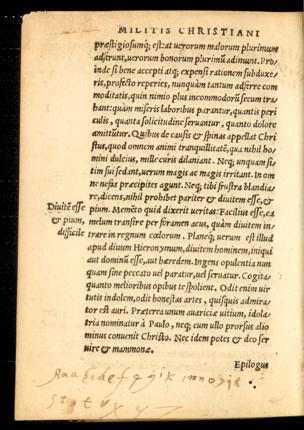 MILITIS CHRISTIANI
præstigiosumq; est: at uerorum malorum plurimum
adferunt, uerorum bonorum plurimū adimunt. Pro
inde si bene accepti atq; expensi rationem subduxe
ris, profecto reperies, nunquàm tantum adferre com
moditatis, quin nimio plus incommodorū secum tra
hant: quàm miseris laboribus parantur, quantis peri
culis, quanta solicitudine seruantur, quanto dolore
amittūtur. Quibus de causis & spinas appellat Chri
stus, quod omnem animi tranquillitatē, qua nihil ho
mini dulcius, mille curis dilaniant. Neq; unquam si
tim suis sedant, uerum magis ac magis irritant. In om
ne nefas præcipites agunt. Neq; tibi frustra blandia
re, dicens, nihil prohibet pariter & diuitem esse, &
pium. Memēto quid dixerit ueritas: Facilius esse, ca
melum transire per foramen acus, quàm diuitem in
trare in regnum cœlorum. Planeq; uerum est illud
apud diuum Hieronymum, diuitem hominem, iniqui
aut dominū esse, aut hæredem. Ingens opulentia nun
quam sine peccato uel paratur, uel seruatur. Cogita
quanto melioribus opibus te spolient. Odit enim uir
tutis indolem, odit honestas artes, quisquis admira
tor est auri. Præterea unum auariciæ uitium, idolo
tria nominatur à Paulo, neq; cum ullo prorsus alio
minus conuenit Christo. Nec idem potes & deo ser
uire & mammonæ.
Diuitē esse
& pium,
difficile
Epilogus